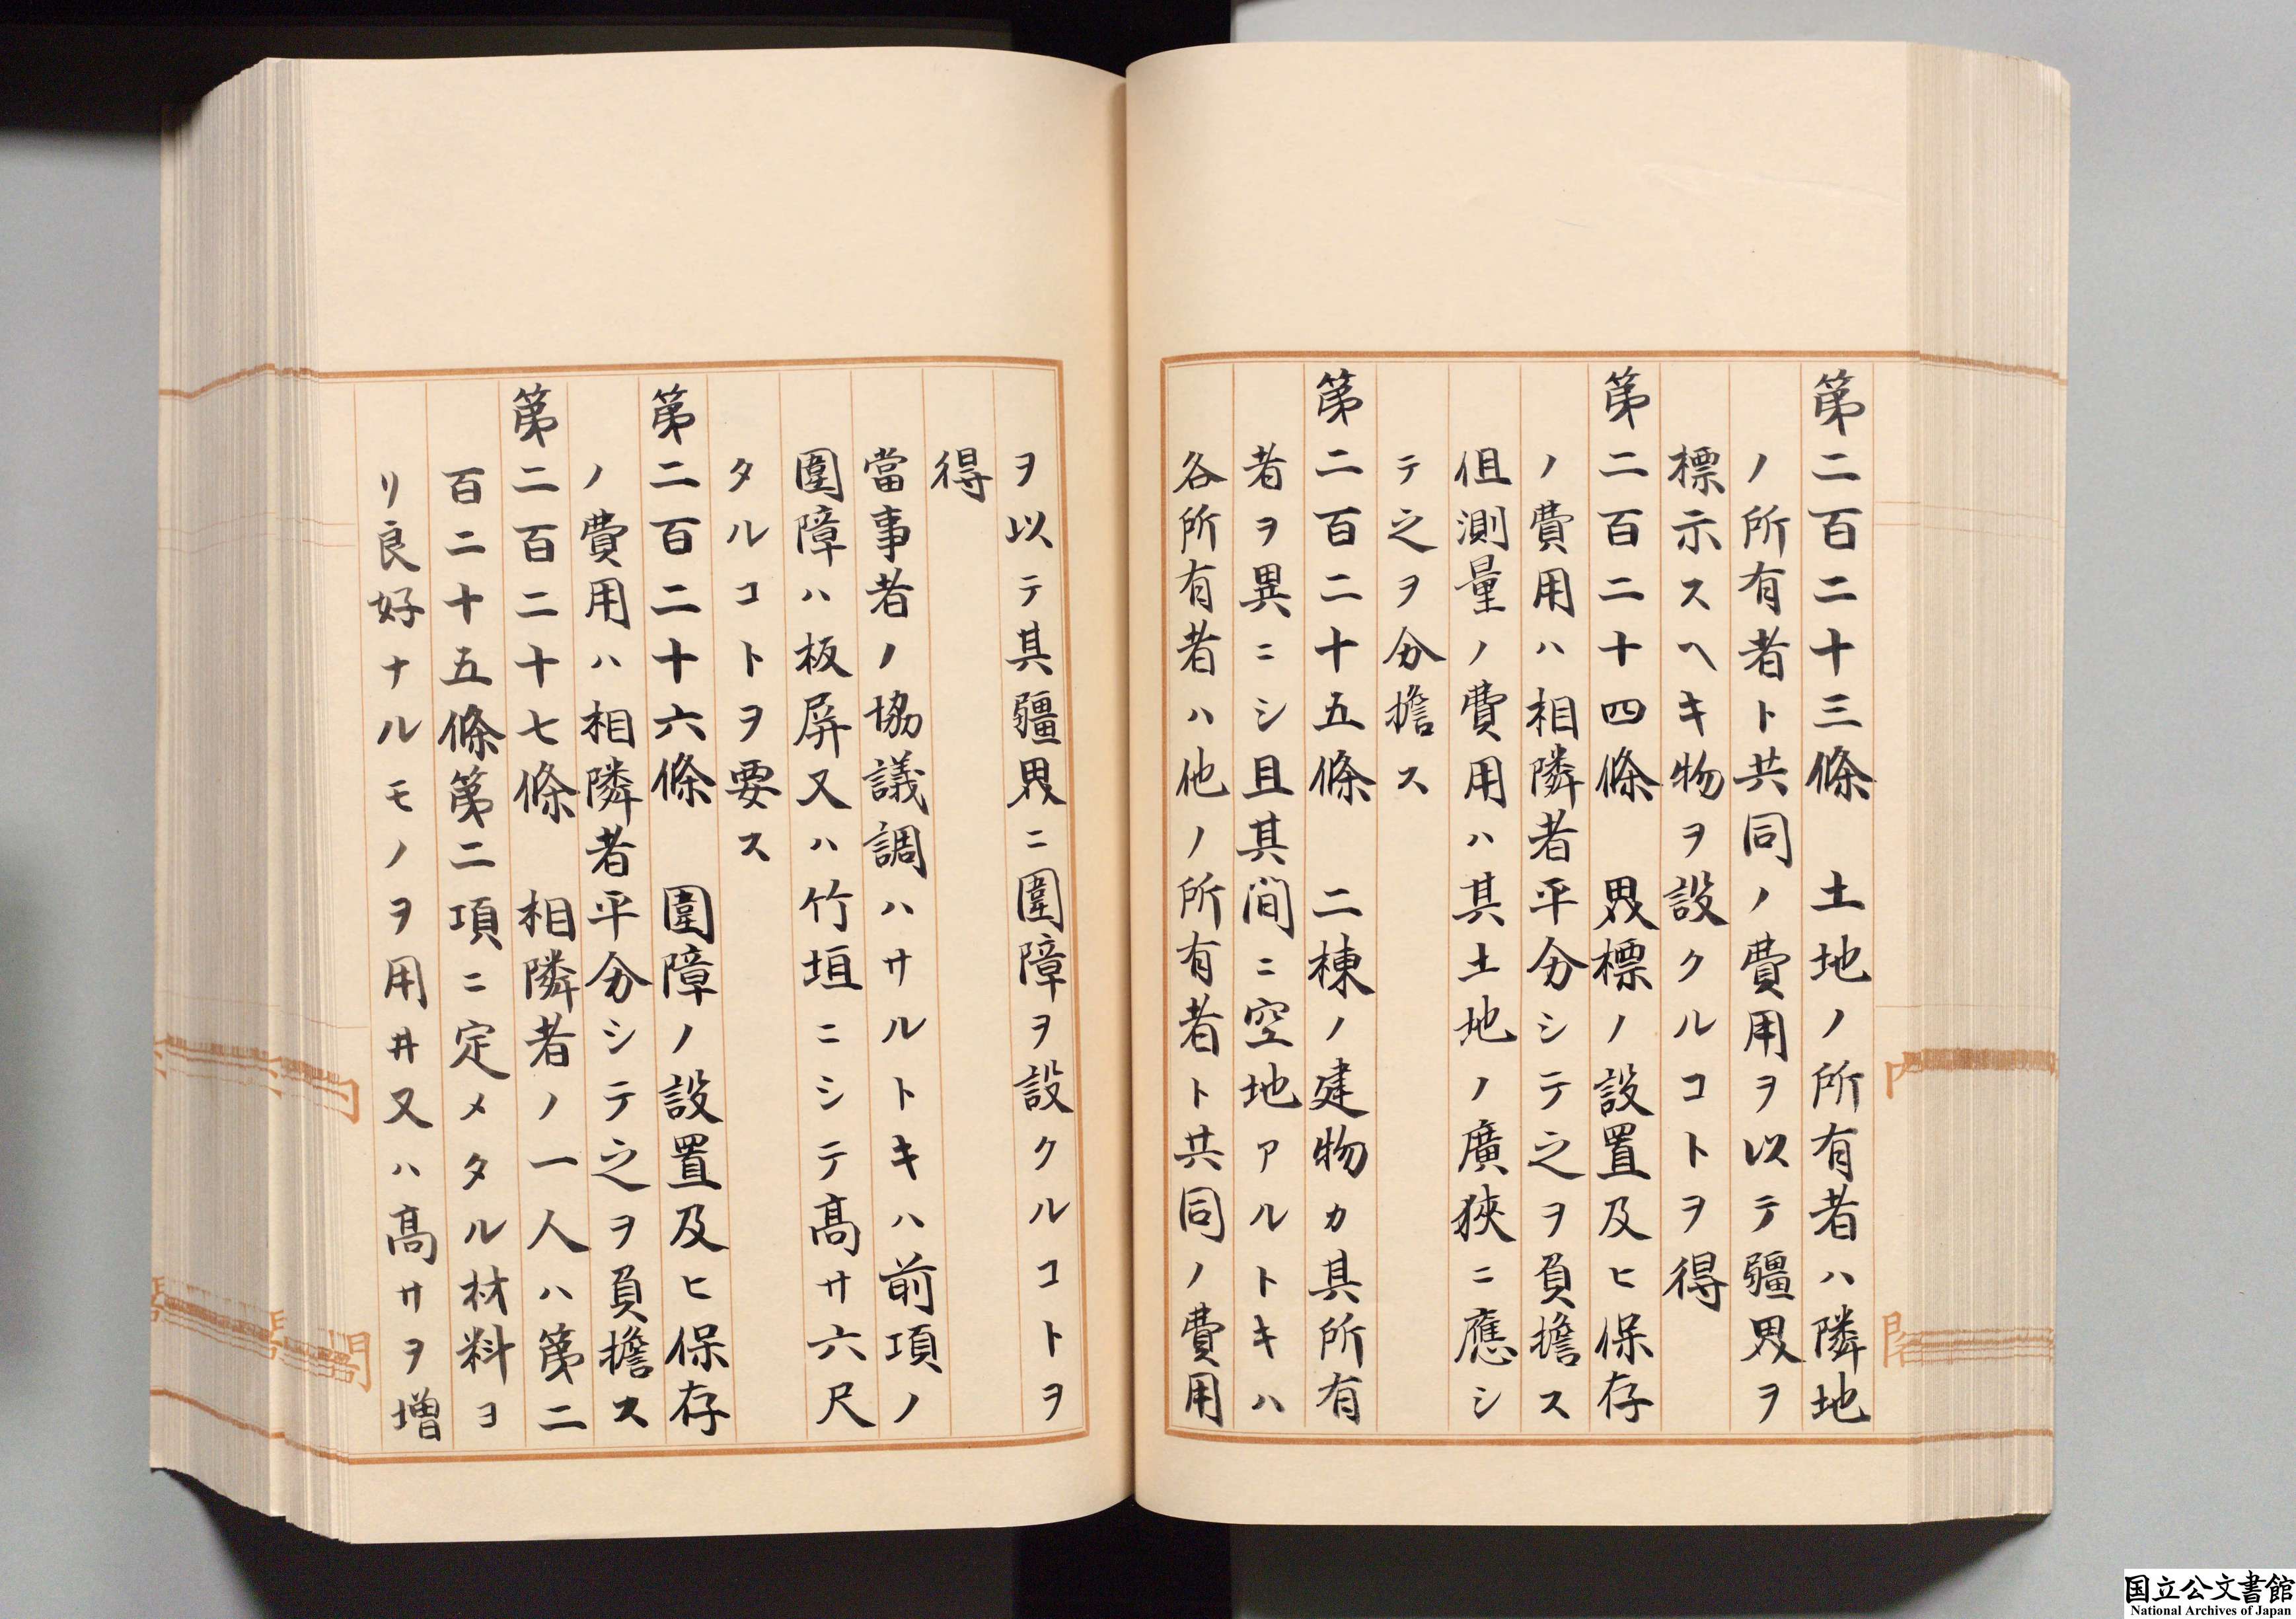 第二百二十三條　土地ノ所有者ハ隣地
ノ所有者ト共同ノ費用ヲ以テ疆界ヲ
標示スヘキ物ヲ設クルコトヲ得
第二百二十四條　界標ノ設置及ヒ保存
ノ費用ハ相隣者平分シテ之ヲ負擔ス
但測量ノ費用ハ其土地ノ廣狹ニ應シ
テ之ヲ分擔ス
第二百二十五條　二棟ノ建物カ其所有
者ヲ異ニシ且其間ニ空地アルトキハ
各所有者ハ他ノ所有者ト共同ノ費用
ヲ以テ其疆界ニ圍障ヲ設クルコトヲ
得
當事者ノ協議調ハサルトキハ前項ノ
圍障ハ板屏又ハ竹垣ニシテ高サ六尺
タルコトヲ要ス
第二百二十六條　圍障ノ設置及ヒ保存
ノ費用ハ相隣者平分シテ之ヲ負擔ス
第二百二十七條　相隣者ノ一人ハ第二
百二十五條第二項ニ定メタル材料ヨ
リ良好ナルモノヲ用井又ハ高サヲ增
内
閣
国立公文書館
National Archives of Japan